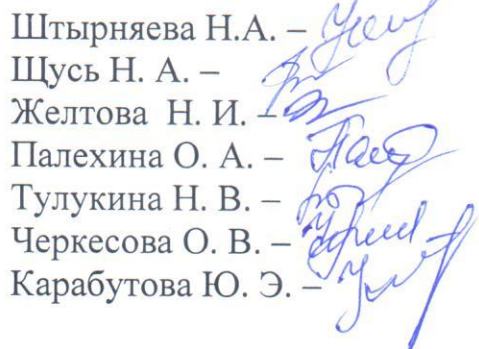 Штырняева Н.А. –
Щусь Н. А. –
Желтова Н. И. –
Палехина О. А. –
Тулукина Н. В. –
Черкесова О. В. –
Карабутова Ю. Э. –